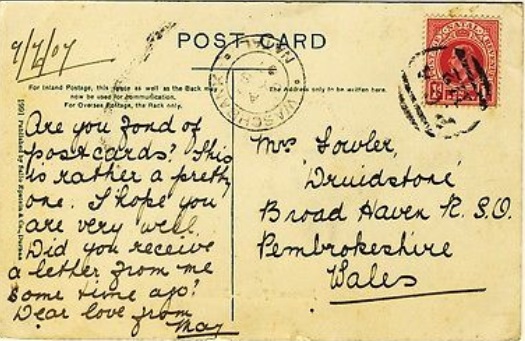 9/7/07
POST CARD
For Inland Postage, this space as well as the Back may
now be used for communication.
For Overseas Postage, the Back only.
The Address only to be written here.
NATAL
Are you fond of
postcards? This
is rather a pretty
one. I hope you
are very well.
Did you receive
a letter from me
some time ago?
Dear love from
May
Mrs Fowler,
'Druidstone'
Broad Haven R.S.O.
Pembrokeshire
Wales